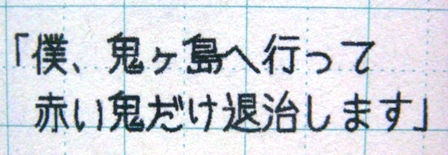 「僕、鬼ヶ島へ行って
赤い鬼だけ退治します」